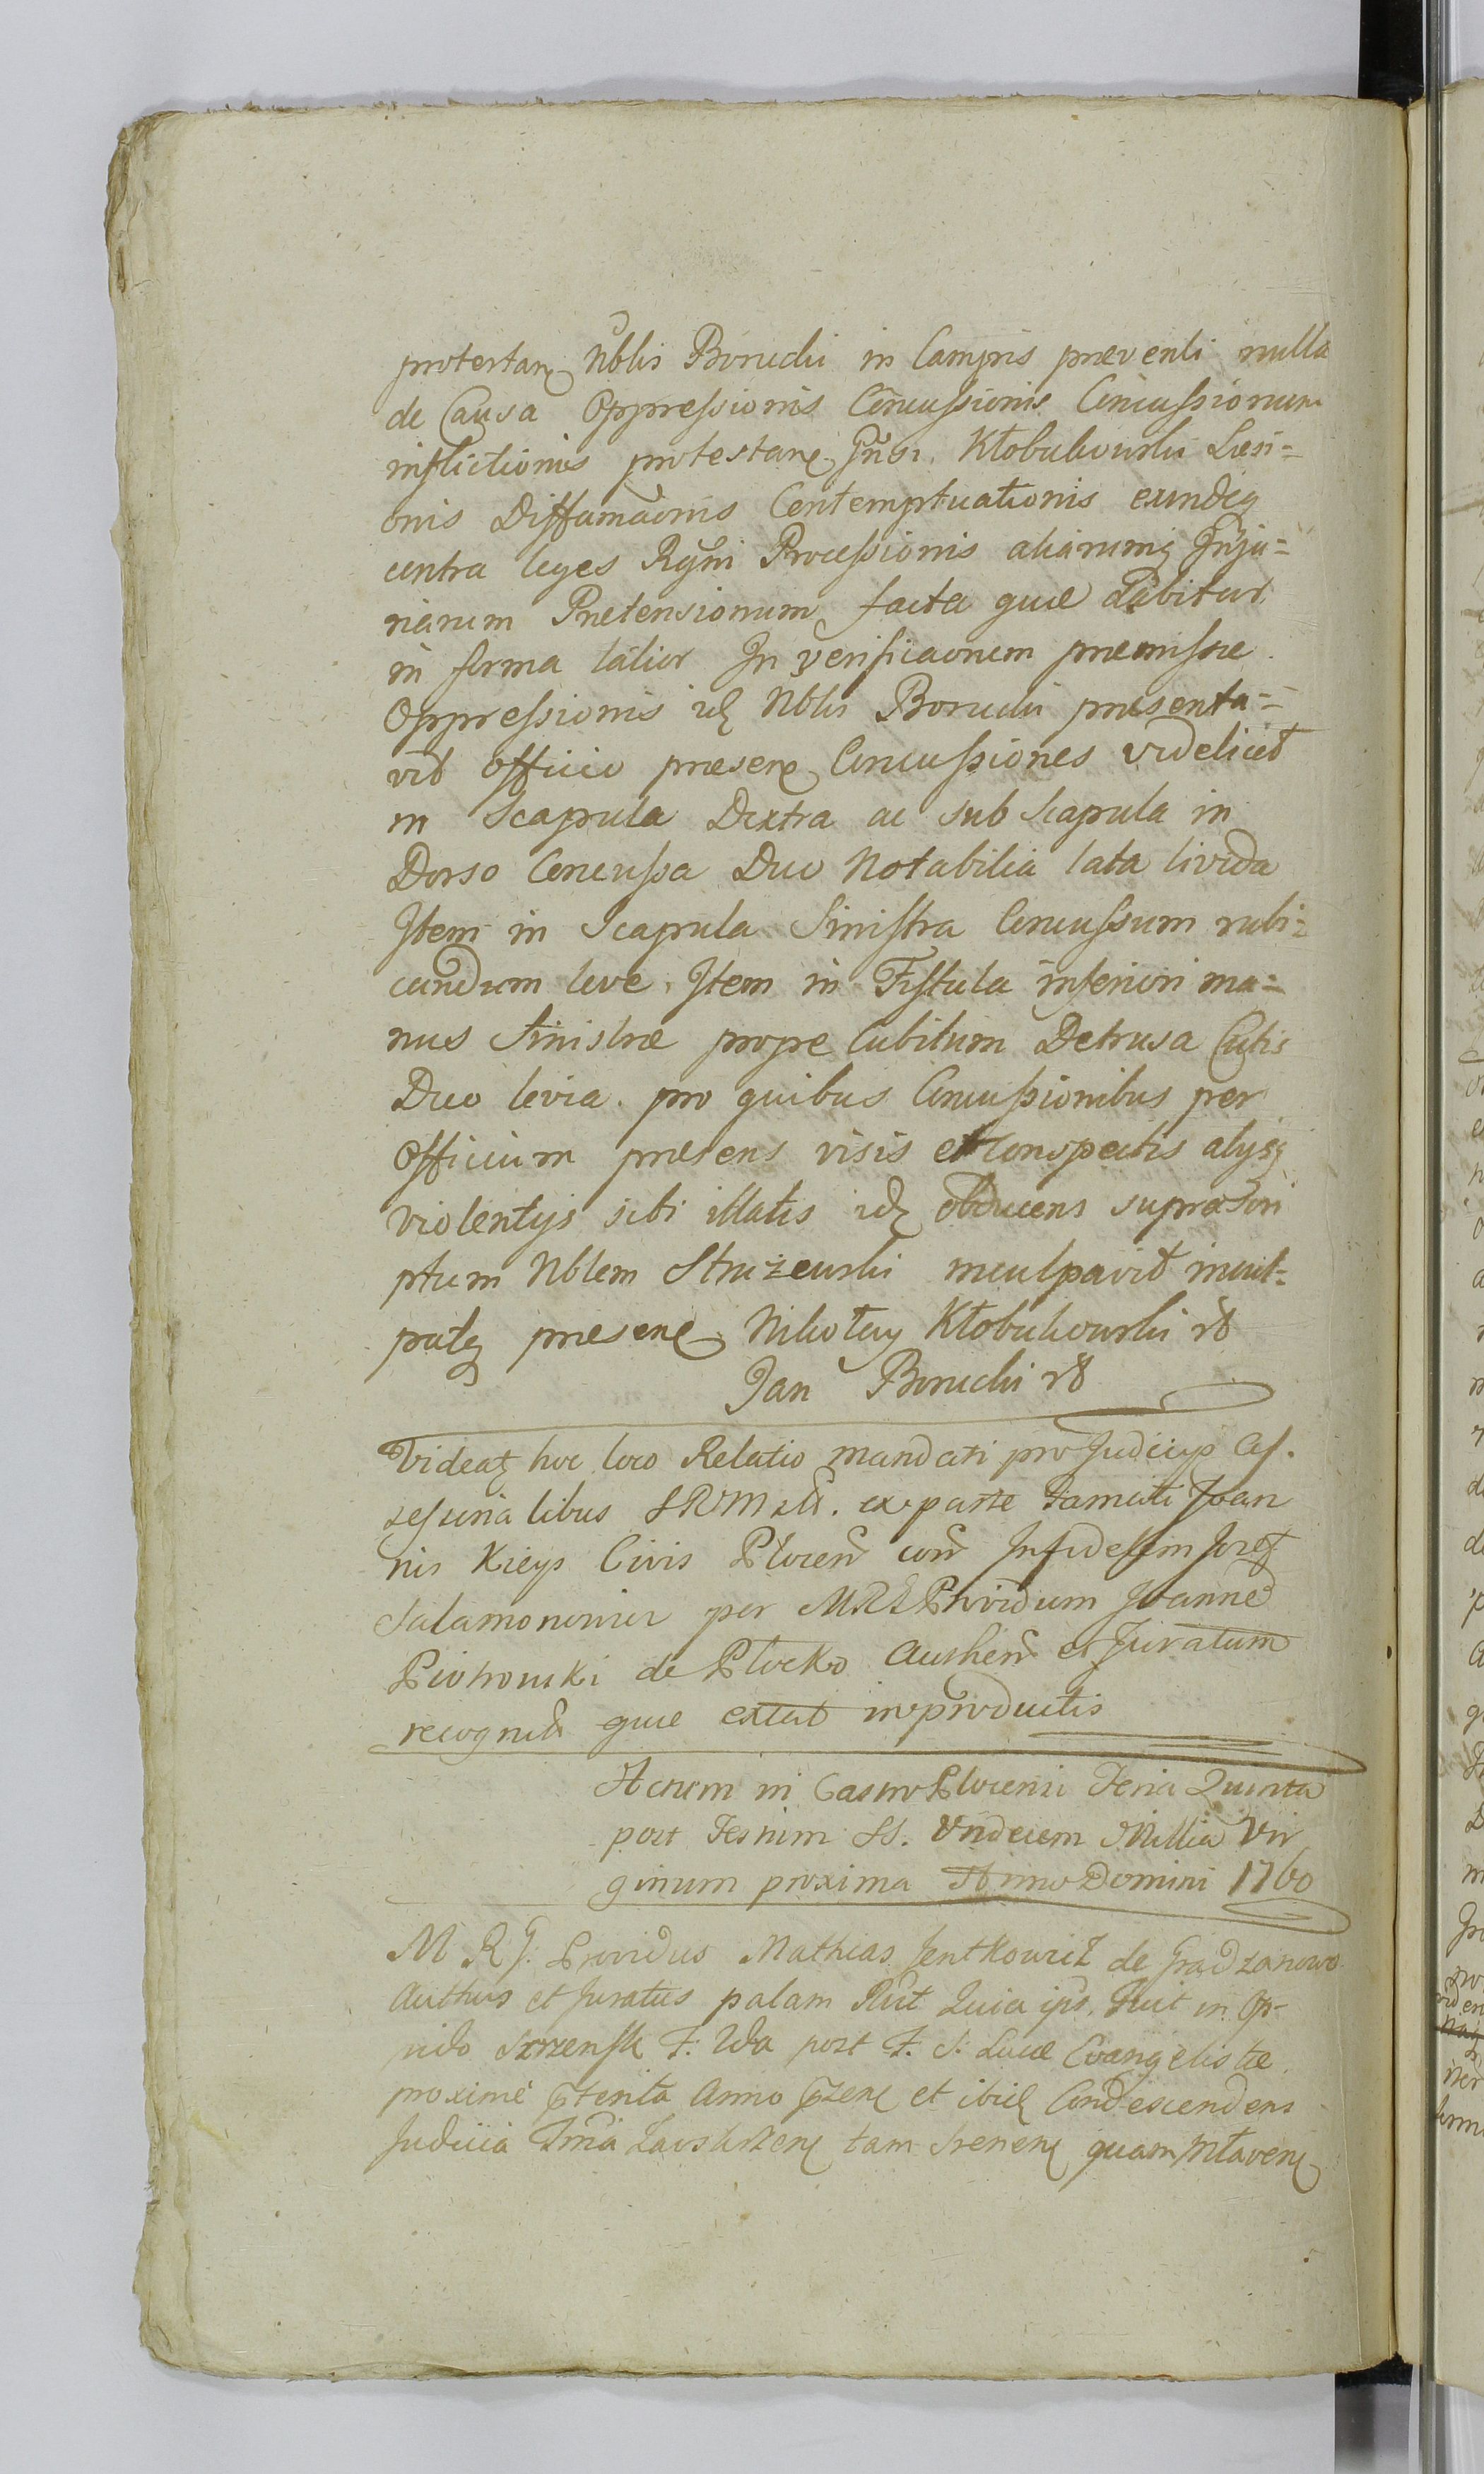 protestan Nblis Borucki in Campis praeventi nulla
de Causa Oppressionis Concussionis Concussionum
inflictionis protestane Gnsi. Kłobukowski Laesi=
onis Diffamãonis Contemptuationis eundeq
contra leges Regni Processionis aliarumq Inju=
riarum Praetensionum facta quae dabitur
in forma latior In verificãonem praemissae
Oppressionis idq Nblis Borucki praesenta=
vit officio praesene Concussiones videlicet
in Scapula Dextra ac sub scapula in
Dorso Concussa Duo Notabilia lata livida
Item in Scapula Sinistra Concussum rubi=
cundum leve, Item in Fistula inferiori ma=
nus Sinistrae prope Cubitum Detrusa Cutis
Duo levia. pro quibus Concussionibus per
Officium praesens visis et conspectis alysq
violentys sibi illatis idq obducens suprascri
ptum Nblem Strużewski inculpavit incul=
patq praesene Mikołay Kłobukowski
Jan Borucki
Videatq hoc loco Relatio mandati pro Judicys As.
sessorialibus SRM. ex parte Famati Joan
nis Kieys Civis Plocen con Infidelem Josef
Salamonowicz per MRG Providum Joannem
Piotrowski de Plocko Authen et Juratum
recognit quae extat in productis
Actum in Castro Plocensi Feria Quinta
post Festum SS. Undecem Millia Vir
ginum proxima Anno Domini 1760
M RG. Providus Mathias Jentkowicz de Gradzanowo
Authus et Juratus palam Rlt Quia ips. Fuit in Op-
pido Szrensk F: IIda post F. S: Lucae Evangelistae
proxime pterita Anno pzene et ibiq Condescendens
Judicia Tma Zawskrzene tam Srenene quam Mlavene